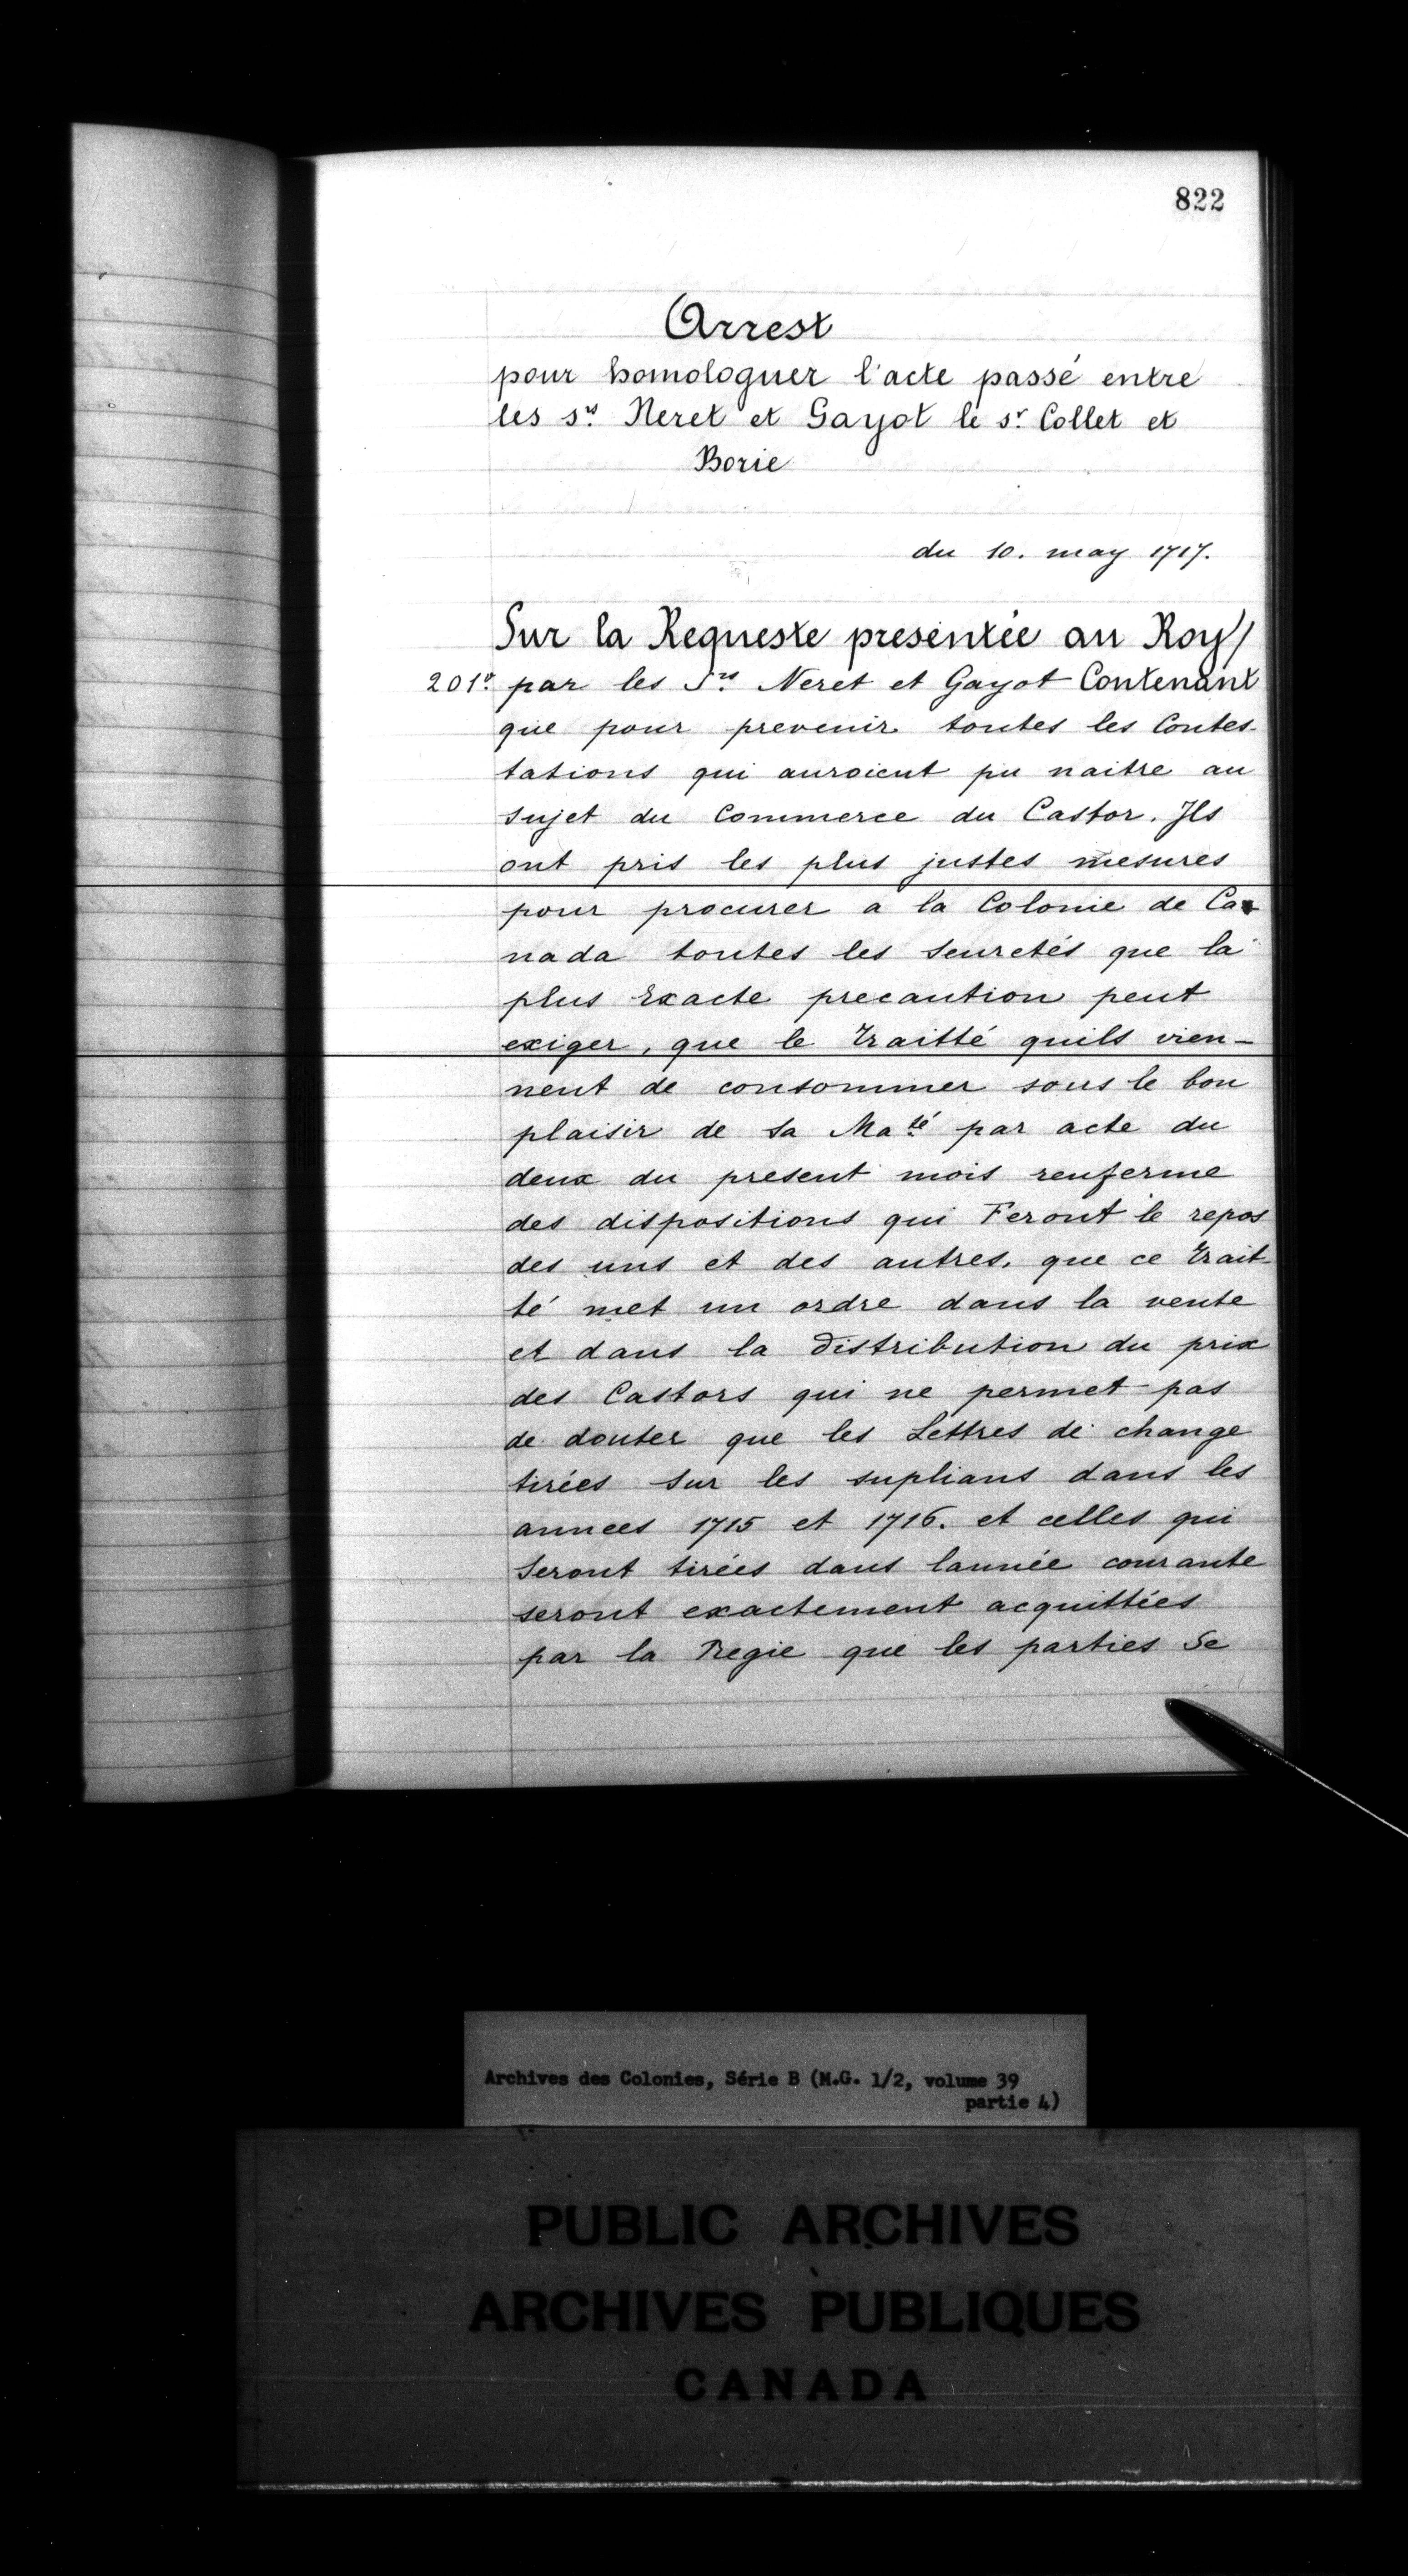 822
Arrest
pour homologuer l'acte passé entre
les srs Neret et Gayot le sr Collet et
Borie
du 10. may 1717.
Sur la Requeste presentée au Roy/
201vo. par les Srs Neret et Gayot Contenant
que pour prevenir toutes les Contes-
tations qui auroient pu naitre au
sujet du Commerce du Castor. Ils
ont pris les plus justes mesures
pour procurer a la Colonie de Ca-
nada toutes les seuretés que la
plus Exacte precaution peut
exiger, que le traitté quils vien-
nent de consommer sous le bon
plaisir de sa Maté par acte du
deux du present mois renferme
des dispositions qui Feront le repos
des uns et des autres, que ce trait-
té met un ordre dans la vente
et dans la distribution du prix
des Castors qui ne permet pas
de douter que les Lettres de change
tirées sur les suplians dans les
années 1715 et 1716. et celles qui
seront tirées dans lannée courante
seront exactement acquittées
par la Regie que les parties se
Archives des Colonies, Série B (M.G. 1/2, volume 39
partie 4)
PUBLIC ARCHIVES
ARCHIVES PUBLIQUES
CANADA